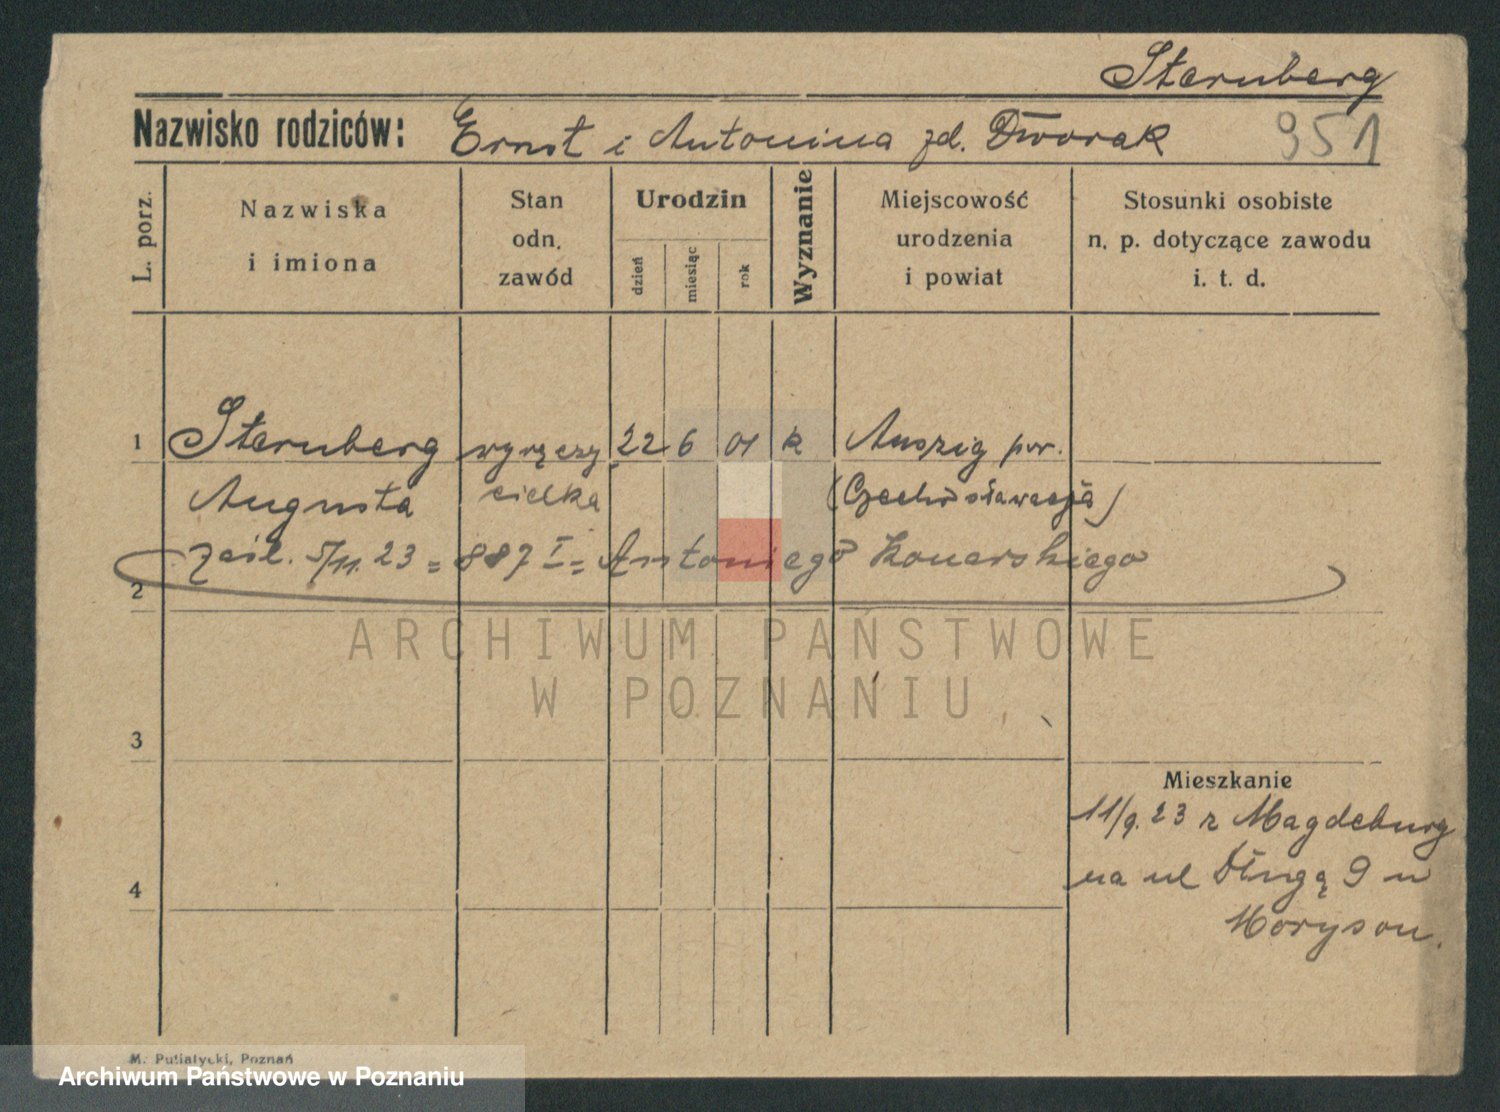 Sternberg
Nazwisko rodziców: Ernst i Antonina zd. Dworak 951
L. porz.
Nazwiska i imiona
Stan odn. zawód
Urodzin
dzień
miesiąc
rok
Wyznanie
Miejscowość urodzenia i powiat
Stosunki osobiste n. p. dotyczące zawodu i. t. d.
1 Sternberg wyręczy 22 6 01 k Auszig pow.
Augusta cielka (Czechosławacja)
zaśl. 5/11. 23 = 887 I = Antoniego Konarskiego
2
ARCHIWUM PAŃSTWOWE
W POZNANIU
3
Mieszkanie
11/9. 23 z Magdeburg
4 na ul Długą 9 u
Moryson.
M. Putiatycki, Poznań
Archiwum Państwowe w Poznaniu